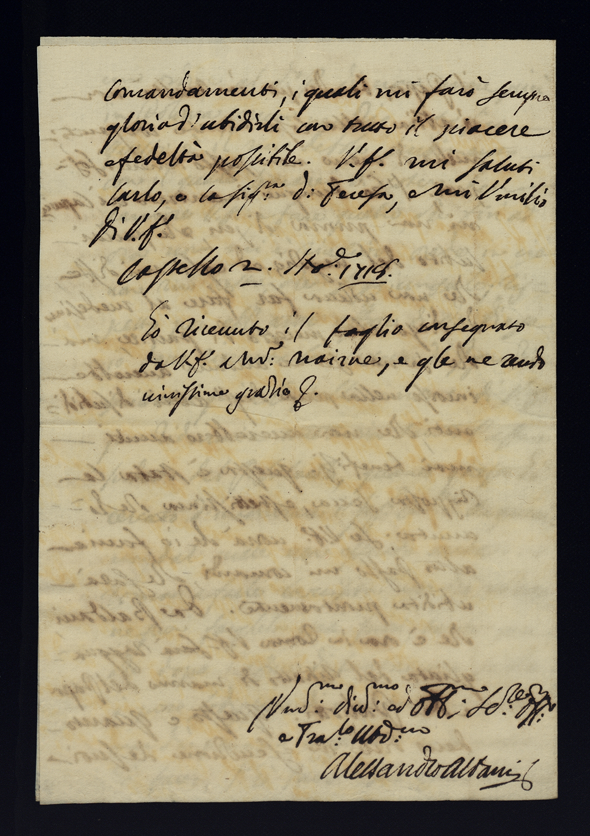 Comandamenti, i quali mi farò sempre
gloria d'ubidirli con tutto il piacere
e fedeltà possibile. V.S. mi saluti
Carlo, e la Sig.ra D. Teresa, e mi Umilio
di V.S.
Castello 2. 1718.
Ho riceuuto il foglio consegnato
da V.S. a Nairne, e gle ne rendo
uiuissime grazie
Um. diu.mo ed Obb.mo
e
Alessandro Albani